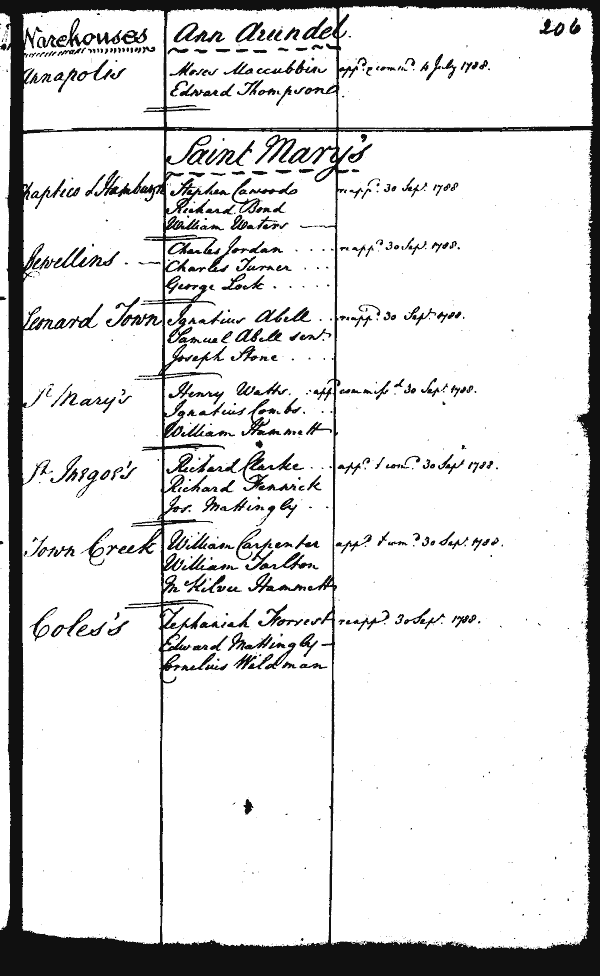 Warehouses Ann Arundel. 206
Annapolis Moses Maccubbin appd. & commd. 4 July 1788.
Edward Thompson
Saint Mary's
Chaptico & Hamburgh Stephen Cawoods reappd. 30 Sept. 1788
Richard Bond
William Waters
Lewellins. Charles Jordan .... reappd. 30 Sept. 1788.
Charles Turner ...
George Lock .....
Leonard Town Ignatius Abell .. reappd. 30 Sept. 1788.
Samuel Abell senr.
Joseph Stone ....
St. Mary's Henry Watts. appd. commissd. 30 Sept. 1788.
Ignatius Combs. ..
William Hammett.
St. Inegoe's Richard Clarke ... appd. & comd. 30 Sept. 1788.
Richard Fenwick
Jos. Mattingly ..
Town Creek William Carpenter appd. & comd. 30 Sept. 1788.
William Tarlton
McKilvie Hammett
Coles's Zephaniah Forrest reappd. 30 Sept. 1788.
Edward Mattingly
Cornelius Wildman